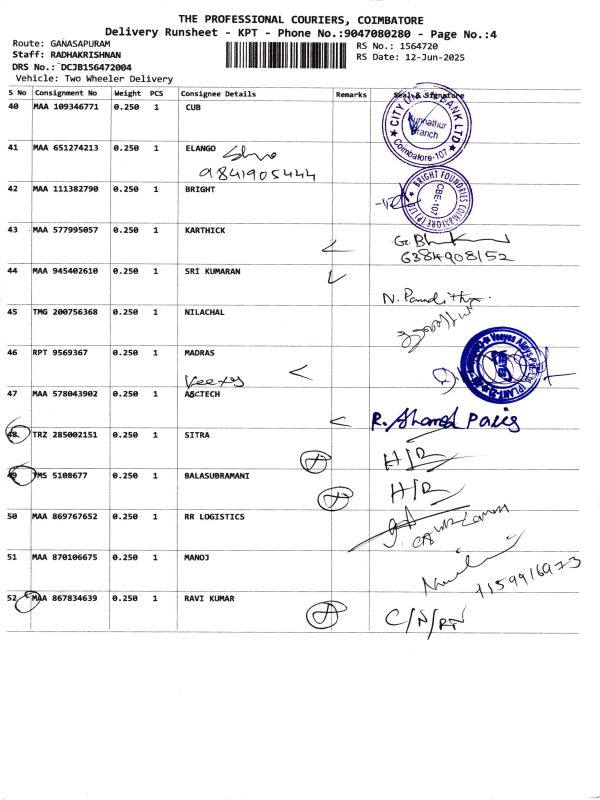 THE PROFESSIONAL COURIERS, COIMBATORE
Delivery Runsheet - KPT - Phone No.:9047080280 - Page No.:4
Route: GANASAPURAM
RS No.: 1564720
Staff: RADHAKRISHNAN
RS Date: 12-Jun-2025
DRS No.: DCJB156472004
Vehicle: Two Wheeler Delivery
S No Consignment No Weight PCS Consignee Details Remarks Seal & Signature
40 MAA 109346771 0.250 1 CUB
CITY UNION BANK LTD
Kunnathur
Branch
Coimbatore-107
41 MAA 651274213 0.250 1 ELANGO
9841905444
42 MAA 111382790 0.250 1 BRIGHT
BRIGHT FOUNDRIES COIMBATORE (P) LTD
CBE-107
43 MAA 577995057 0.250 1 KARTHICK
6384908152
44 MAA 945402610 0.250 1 SRI KUMARAN
N. Pandithya
45 TMG 200756368 0.250 1 NILACHAL
46 RPT 9569367 0.250 1 MADRAS
Veexes
47 MAA 578043902 0.250 1 A&CTECH
R. Ahamed Paris
48 TRZ 285002151 0.250 1 SITRA
H/R
49 TMS 5108677 0.250 1 BALASUBRAMANI
H/R
50 MAA 869767652 0.250 1 RR LOGISTICS
51 MAA 870106675 0.250 1 MANOJ
1159916973
52 MAA 867834639 0.250 1 RAVI KUMAR
C/N/RN